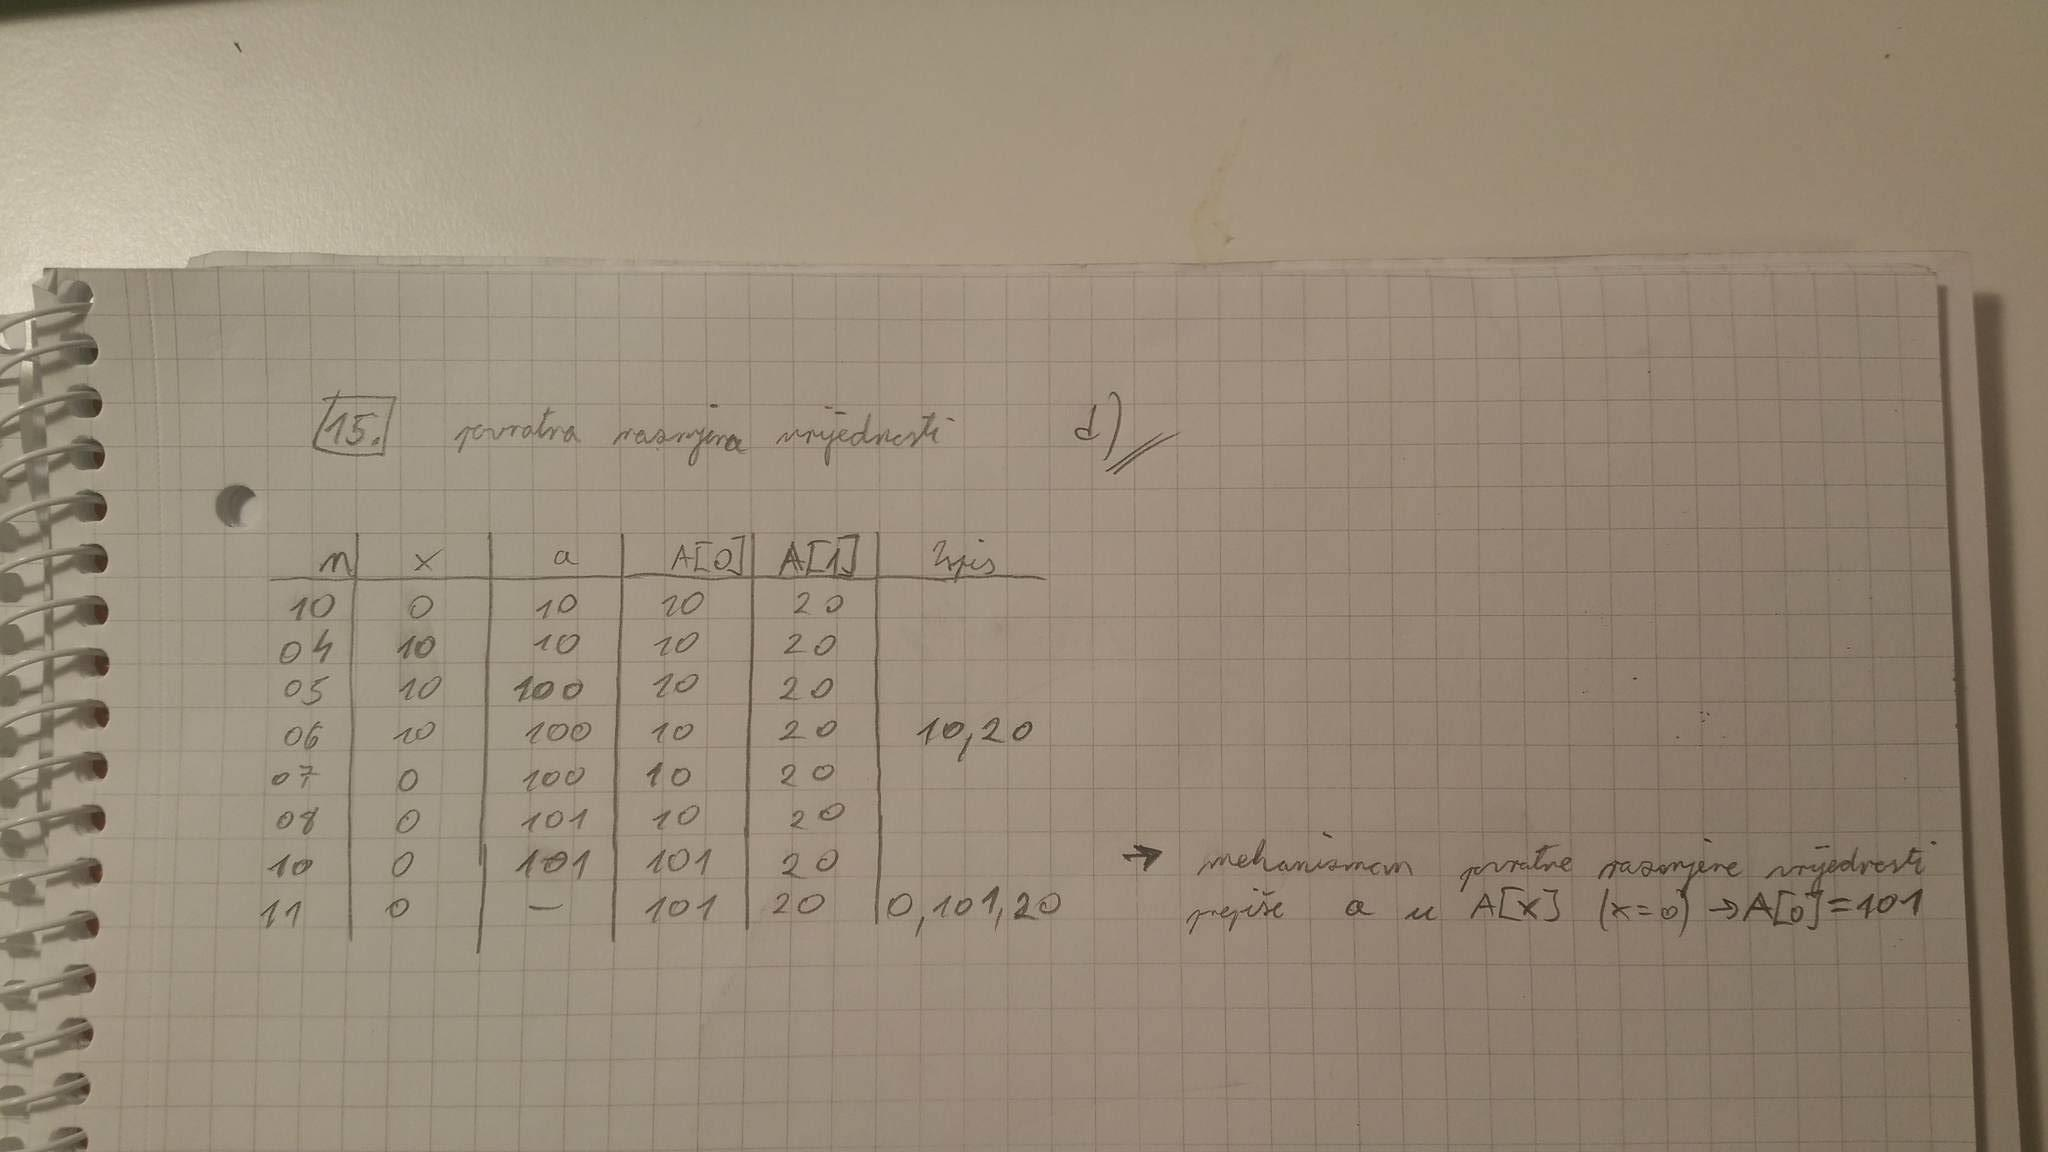 15. povratna razmjena vrijednosti d)
n x a A[0] A[1] Ispis
10 0 10 10 20
04 10 10 10 20
05 10 100 10 20
06 10 100 10 20 10,20
07 0 100 10 20
08 0 101 10 20
10 0 101 101 20
11 0 — 101 20 0,101,20
→ mehanizmom povratne razmjene vrijednosti
prepiše a u A[x] (x=0) → A[0]=101